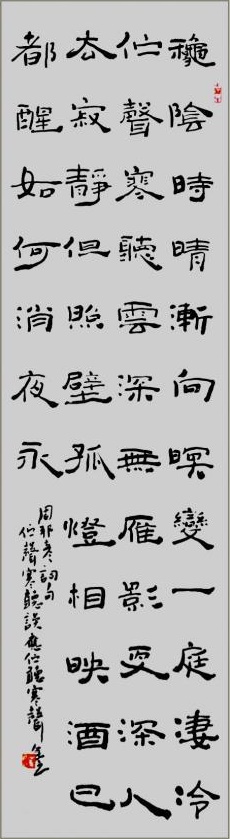 龝陰時晴漸向暝變一庭淒冷
佇聲寒聽雲深無雁影更深人
去寂靜但照壁孤燈相映酒已
都醒如何消夜永
周邦彥詞句
佇聲寒聽誤應佇聽寒聲